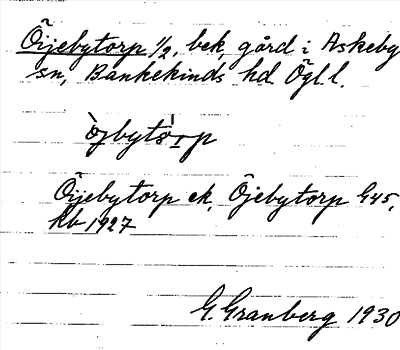 Öijebytorp 1/2, bek, gård i Askeby
sn, Bankekinds hd. Ögl. l.
öjbytorp
Öijebytorp ek, Öjebytorp G45,
kb 1927
G. Granberg 1930